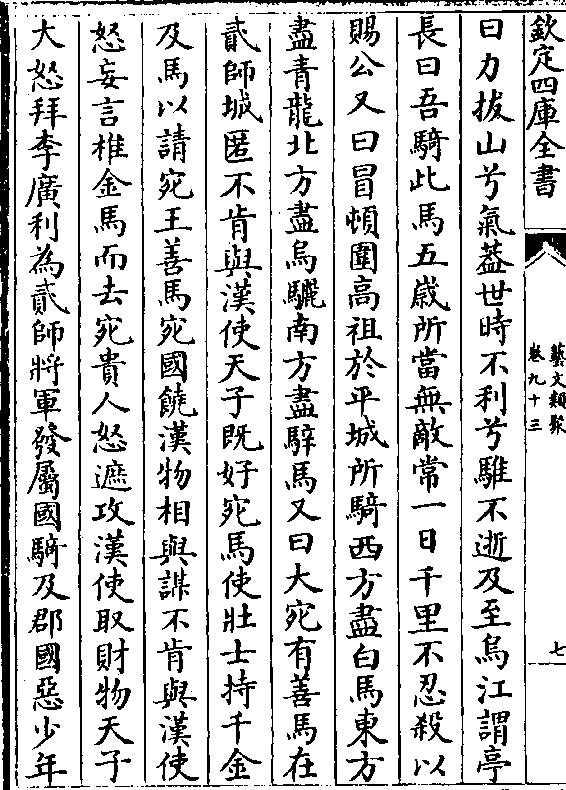 欽定四庫全書
藝文類聚
卷九十三
七
曰力拔山兮氣蓋世時不利兮騅不逝及至烏江謂亭
長曰吾騎此馬五嵗所當無敵常一日千里不忍殺以
賜公又曰冒頓圍高祖於平城所騎西方盡白馬東方
盡青龍北方盡烏驪南方盡騂馬又曰大宛有善馬在
貳師城匿不肯與漢使天子既好宛馬使壯士持千金
及馬以請宛王善馬宛國饒漢物相與謀不肯與漢使
怒妄言椎金馬而去宛貴人怒遮攻漢使取財物天子
大怒拜李廣利為貳師將軍發屬國騎及郡國惡少年